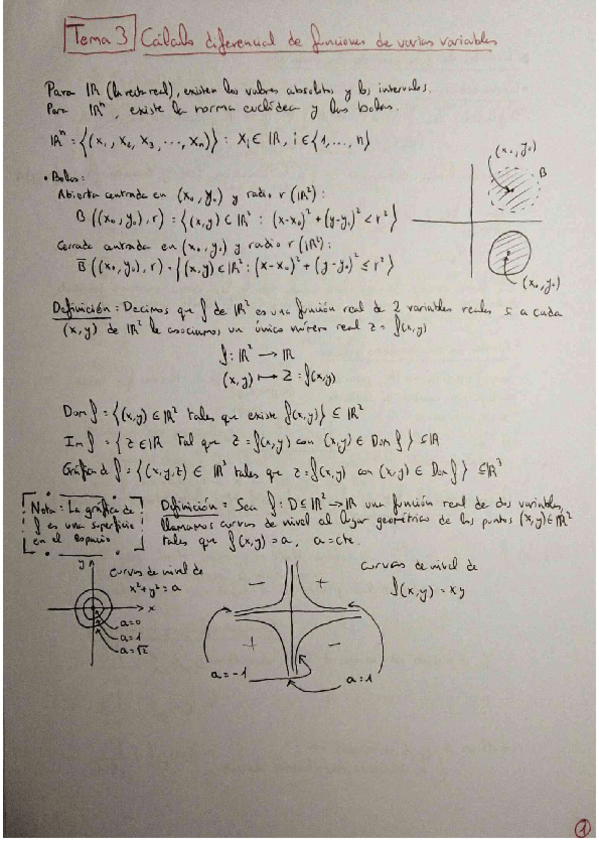 Tema 3 Cálculo diferencial de funciones de varias variables
Para ℝ (la recta real), existen los valores absolutos y los intervalos.
Para ℝⁿ, existe la norma euclídea y las bolas.
ℝⁿ = {(x₁, x₂, x₃, ..., xₙ)} : xᵢ ∈ ℝ, i ∈ {1, ..., n}
• Bolas:
Abierta centrada en (x₀, y₀) y radio r (ℝ²):
B((x₀, y₀), r) = {(x, y) ∈ ℝ² : (x-x₀)² + (y-y₀)² < r²}
Cerrada centrada en (x₀, y₀) y radio r (ℝ²):
B̅((x₀, y₀), r) = {(x, y) ∈ ℝ² : (x-x₀)² + (y-y₀)² ≤ r²}
(x₀, y₀)
B
(x₀, y₀)
Definición: Decimos que f de ℝ² es una función real de 2 variables reales si a cada
(x, y) de ℝ² le asociamos un único número real z = f(x, y)
f: ℝ² → ℝ
(x, y) ↦ z = f(x, y)
Dom f = {(x, y) ∈ ℝ² tales que existe f(x, y)} ⊆ ℝ²
Im f = {z ∈ ℝ tal que z = f(x, y) con (x, y) ∈ Dom f} ⊆ ℝ
Gráfica d f = {(x, y, z) ∈ ℝ³ tales que z = f(x, y) con (x, y) ∈ Dom f} ⊆ ℝ³
Nota: La gráfica de
f es una superficie
en el espacio
Definición: Sea f: D ⊆ ℝ² → ℝ una función real de dos variables,
llamamos curvas de nivel al lugar geométrico de los puntos (x, y) ∈ ℝ²
tales que f(x, y) = a, a = cte.
y
curvas de nivel de
x² + y² = a
x
a=0
a=1
a=√2
- +
+ -
a=-1
a=1
curvas de nivel de
f(x, y) = xy
1